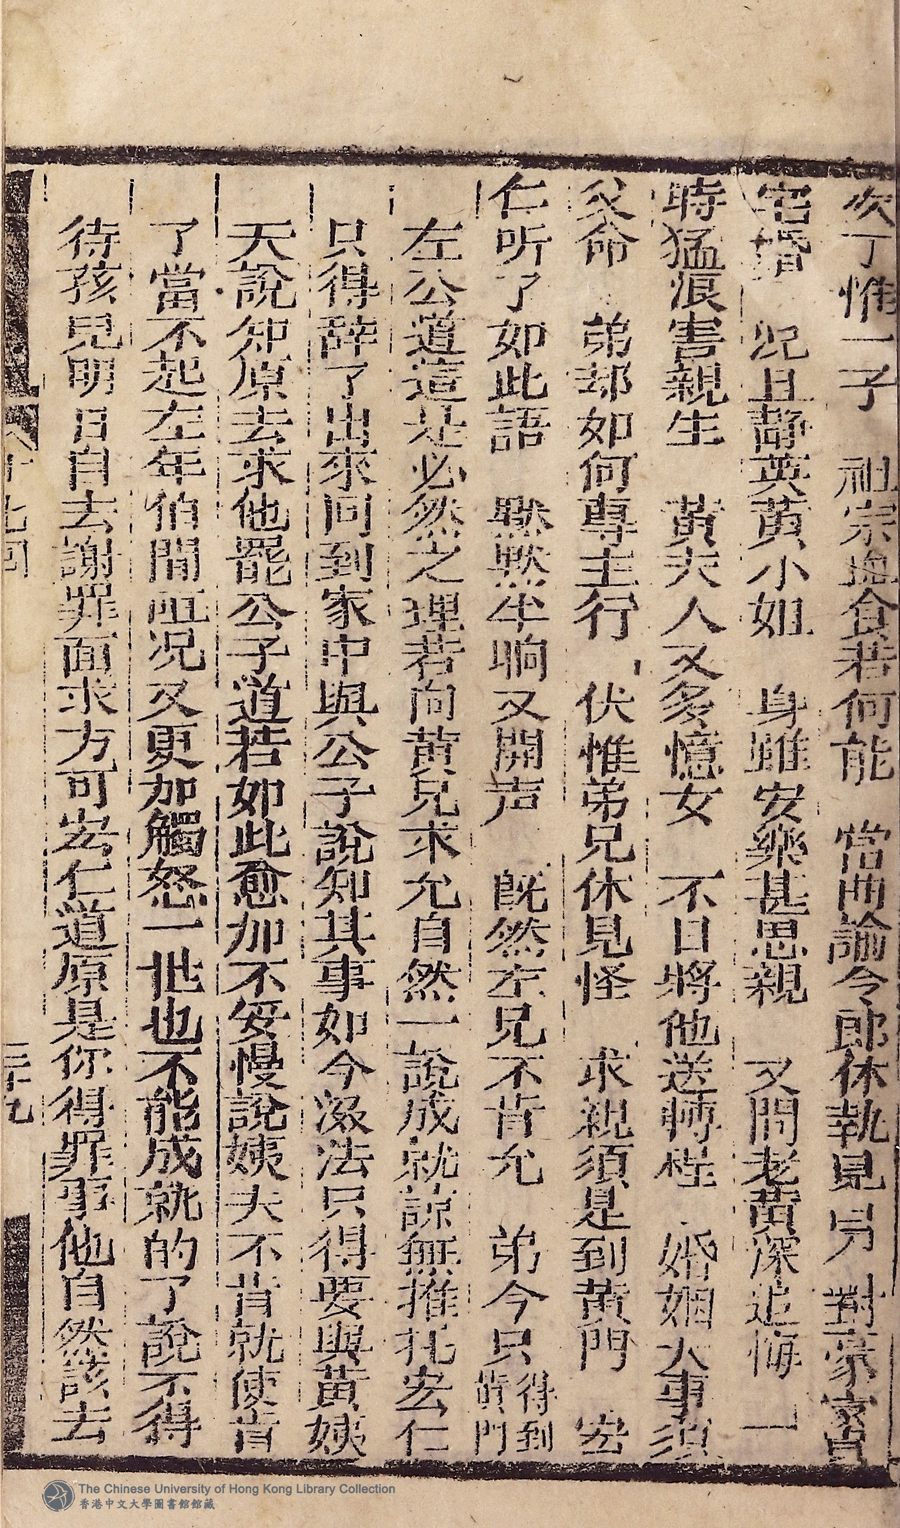 次丁惟一子　祖宗血食若何能　當面諭令郎休執見　另對豪家貴
宅婚　況且靜英黃小姐　身雖安樂甚思親　又聞老黃深追悔　一
時猛浪害親生　黃夫人又多憶女　不日將他送轉程　婚姻大事須
父命　弟却如何專主行　伏惟弟兄休見怪　求親須是到黃門　宏
仁听了如此語　默默半晌又開声　旣然左兄不肯允　弟今只得到黃門
左公道這是必然之理若向黃兄求允自然一說成就諒無推托宏仁
只得辞了出來同到家中與公子說知其事如今沒法只得要與黃姨
天說知原去求他罷公子道若如此愈加不妥慢說姨夫不肯就使肯
了當不起左年伯間阻况又更加觸怒一世也不能成就的了說不得
待孩兒明日自去謝罪面求方可宏仁道原是你得罪事他自然該去
十九回
三十九
The Chinese University of Hong Kong Library Collection
香港中文大學圖書館館藏